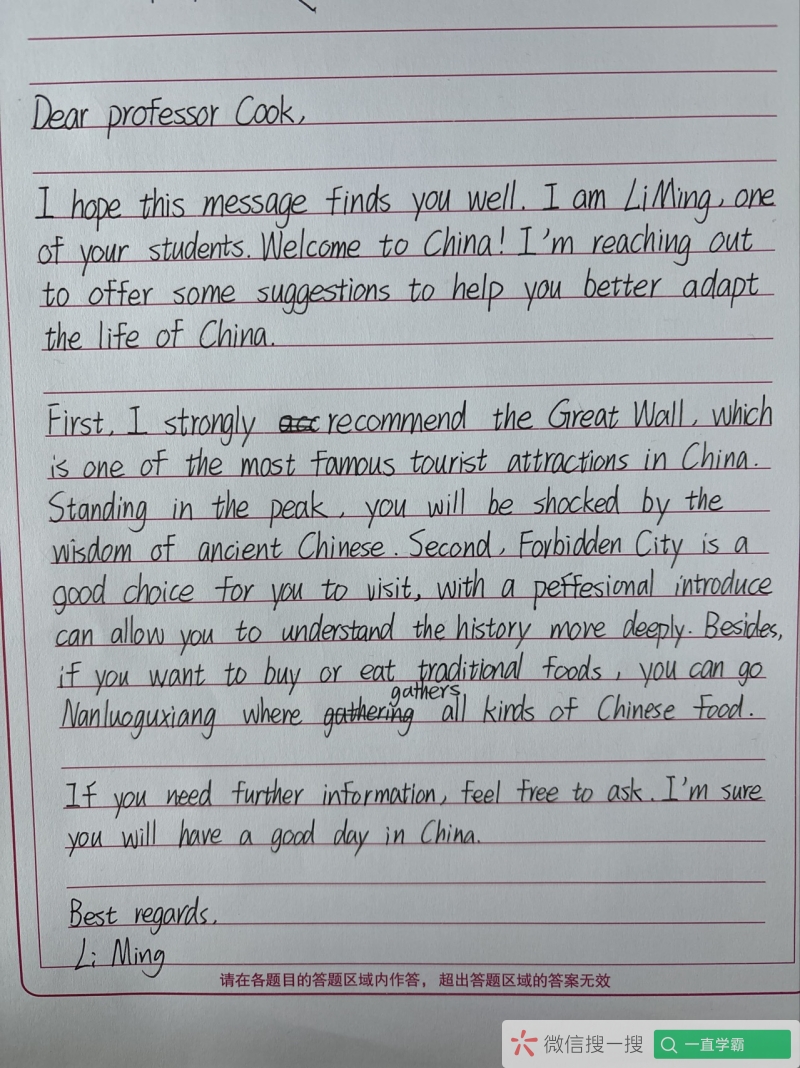 Dear professor Cook,
I hope this message finds you well. I am Li Ming, one
of your students. Welcome to China! I'm reaching out
to offer some suggestions to help you better adapt
the life of China.
First, I strongly acc recommend the Great Wall, which
is one of the most famous tourist attractions in China.
Standing in the peak, you will be shocked by the
wisdom of ancient Chinese. Second, Forbidden City is a
good choice for you to visit, with a peffesional introduce
can allow you to understand the history more deeply. Besides,
if you want to buy or eat traditional foods, you can go
gathers
Nanluoguxiang where gathering all kinds of Chinese food.
If you need further information, feel free to ask. I'm sure
you will have a good day in China.
Best regards,
Li Ming
请在各题目的答题区域内作答，超出答题区域的答案无效
微信搜一搜 一直学霸